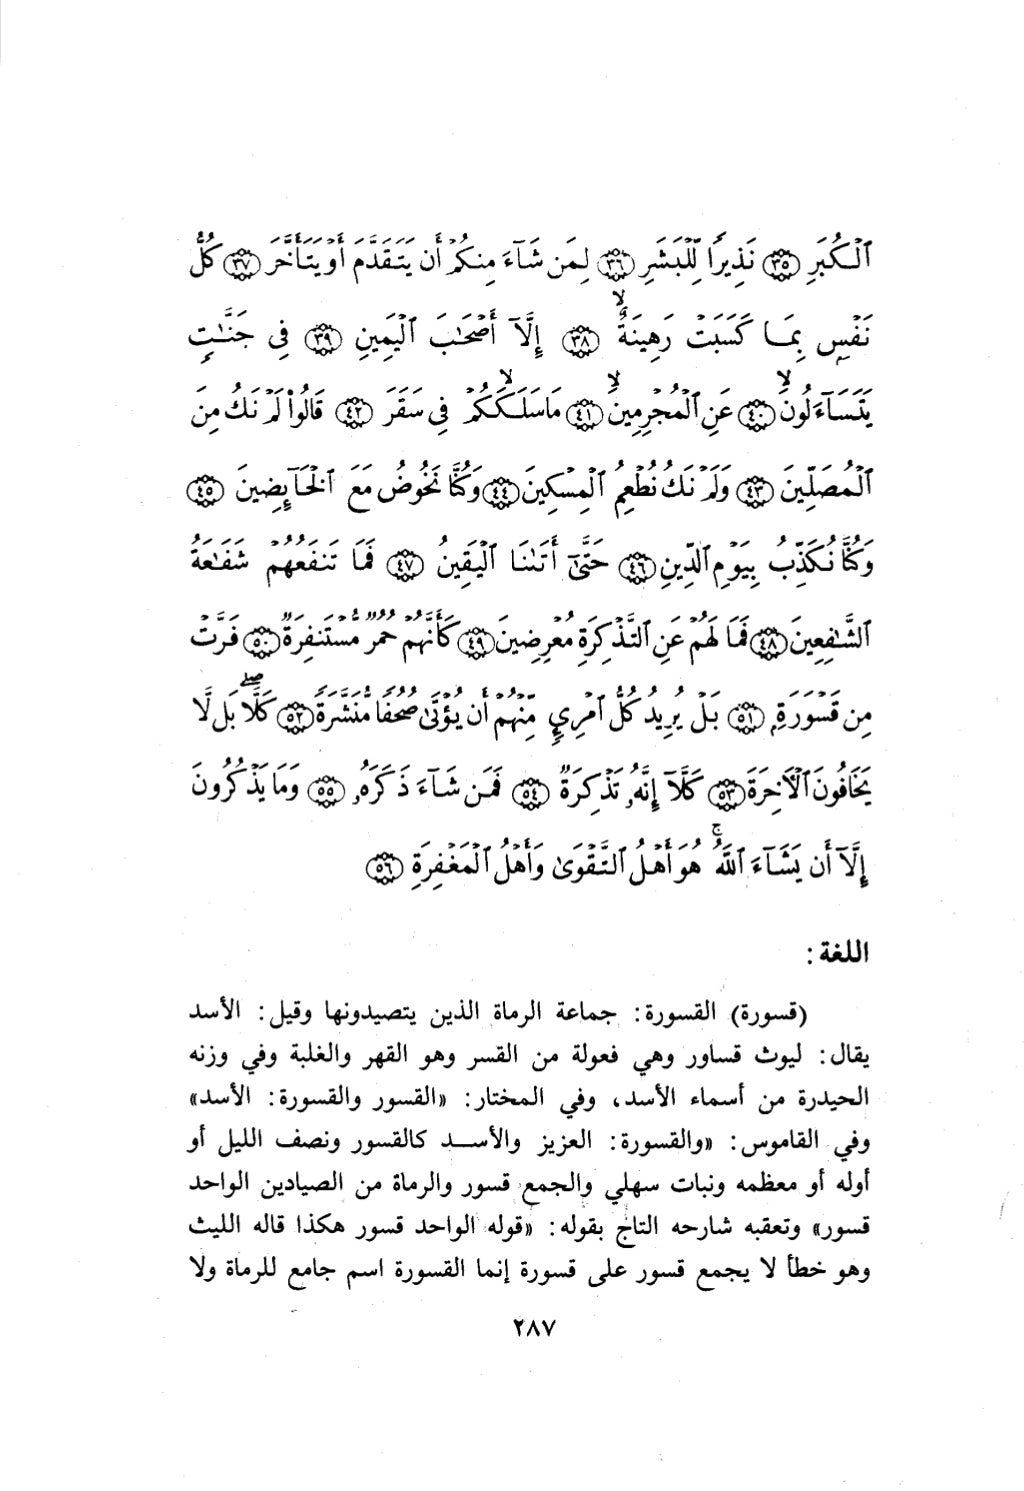 ٱلْكُبَرِ ﴿٣٥﴾ نَذِيرًا لِّلْبَشَرِ ﴿٣٦﴾ لِمَن شَآءَ مِنكُمْ أَن يَتَقَدَّمَ أَوْ يَتَأَخَّرَ ﴿٣٧﴾ كُلُّ
نَفْسٍۭ بِمَا كَسَبَتْ رَهِينَةٌ ۙ ﴿٣٨﴾ إِلَّآ أَصْحَـٰبَ ٱلْيَمِينِ ﴿٣٩﴾ فِى جَنَّـٰتٍ
يَتَسَآءَلُونَ ۙ ﴿٤٠﴾ عَنِ ٱلْمُجْرِمِينَ ۙ ﴿٤١﴾ مَا سَلَكَكُمْ ۙ فِى سَقَرَ ﴿٤٢﴾ قَالُوا۟ لَمْ نَكُ مِنَ
ٱلْمُصَلِّينَ ﴿٤٣﴾ وَلَمْ نَكُ نُطْعِمُ ٱلْمِسْكِينَ ﴿٤٤﴾ وَكُنَّا نَخُوضُ مَعَ ٱلْخَآئِضِينَ ﴿٤٥﴾
وَكُنَّا نُكَذِّبُ بِيَوْمِ ٱلدِّينِ ﴿٤٦﴾ حَتَّىٰٓ أَتَىٰنَا ٱلْيَقِينُ ﴿٤٧﴾ فَمَا تَنفَعُهُمْ شَفَـٰعَةُ
ٱلشَّـٰفِعِينَ ﴿٤٨﴾ فَمَا لَهُمْ عَنِ ٱلتَّذْكِرَةِ مُعْرِضِينَ ﴿٤٩﴾ كَأَنَّهُمْ حُمُرٌ مُّسْتَنفِرَةٌ ﴿٥٠﴾ فَرَّتْ
مِن قَسْوَرَةٍۭ ﴿٥١﴾ بَلْ يُرِيدُ كُلُّ ٱمْرِئٍ مِّنْهُمْ أَن يُؤْتَىٰ صُحُفًا مُّنَشَّرَةً ﴿٥٢﴾ كَلَّا ۖ بَل لَّا
يَخَافُونَ ٱلْـَٔاخِرَةَ ﴿٥٣﴾ كَلَّآ إِنَّهُۥ تَذْكِرَةٌ ﴿٥٤﴾ فَمَن شَآءَ ذَكَرَهُۥ ﴿٥٥﴾ وَمَا يَذْكُرُونَ
إِلَّآ أَن يَشَآءَ ٱللَّهُ ۚ هُوَ أَهْلُ ٱلتَّقْوَىٰ وَأَهْلُ ٱلْمَغْفِرَةِ ﴿٥٦﴾
اللغة :
(قسورة) القسورة: جماعة الرماة الذين يتصيدونها وقيل: الأسد
يقال: ليوث قساور وهي فعولة من القسر وهو القهر والغلبة وفي وزنه
الحيدرة من أسماء الأسد، وفي المختار: «القسور والقسورة: الأسد»
وفي القاموس: «والقسورة: العزيز والأسد كالقسور ونصف الليل أو
أوله أو معظمه ونبات سهلي والجمع قسور والرماة من الصيادين الواحد
قسور» وتعقبه شارحه التاج بقوله: «قوله الواحد قسور هكذا قاله الليث
وهو خطأ لا يجمع قسور على قسورة إنما القسورة اسم جامع للرماة ولا
٢٨٧